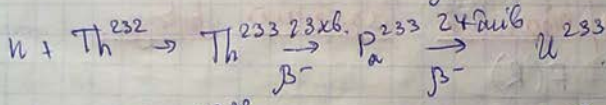 n + Th²³² → Th²³³ 23хв. → β⁻ Pa²³³ 24днів → β⁻ U²³³